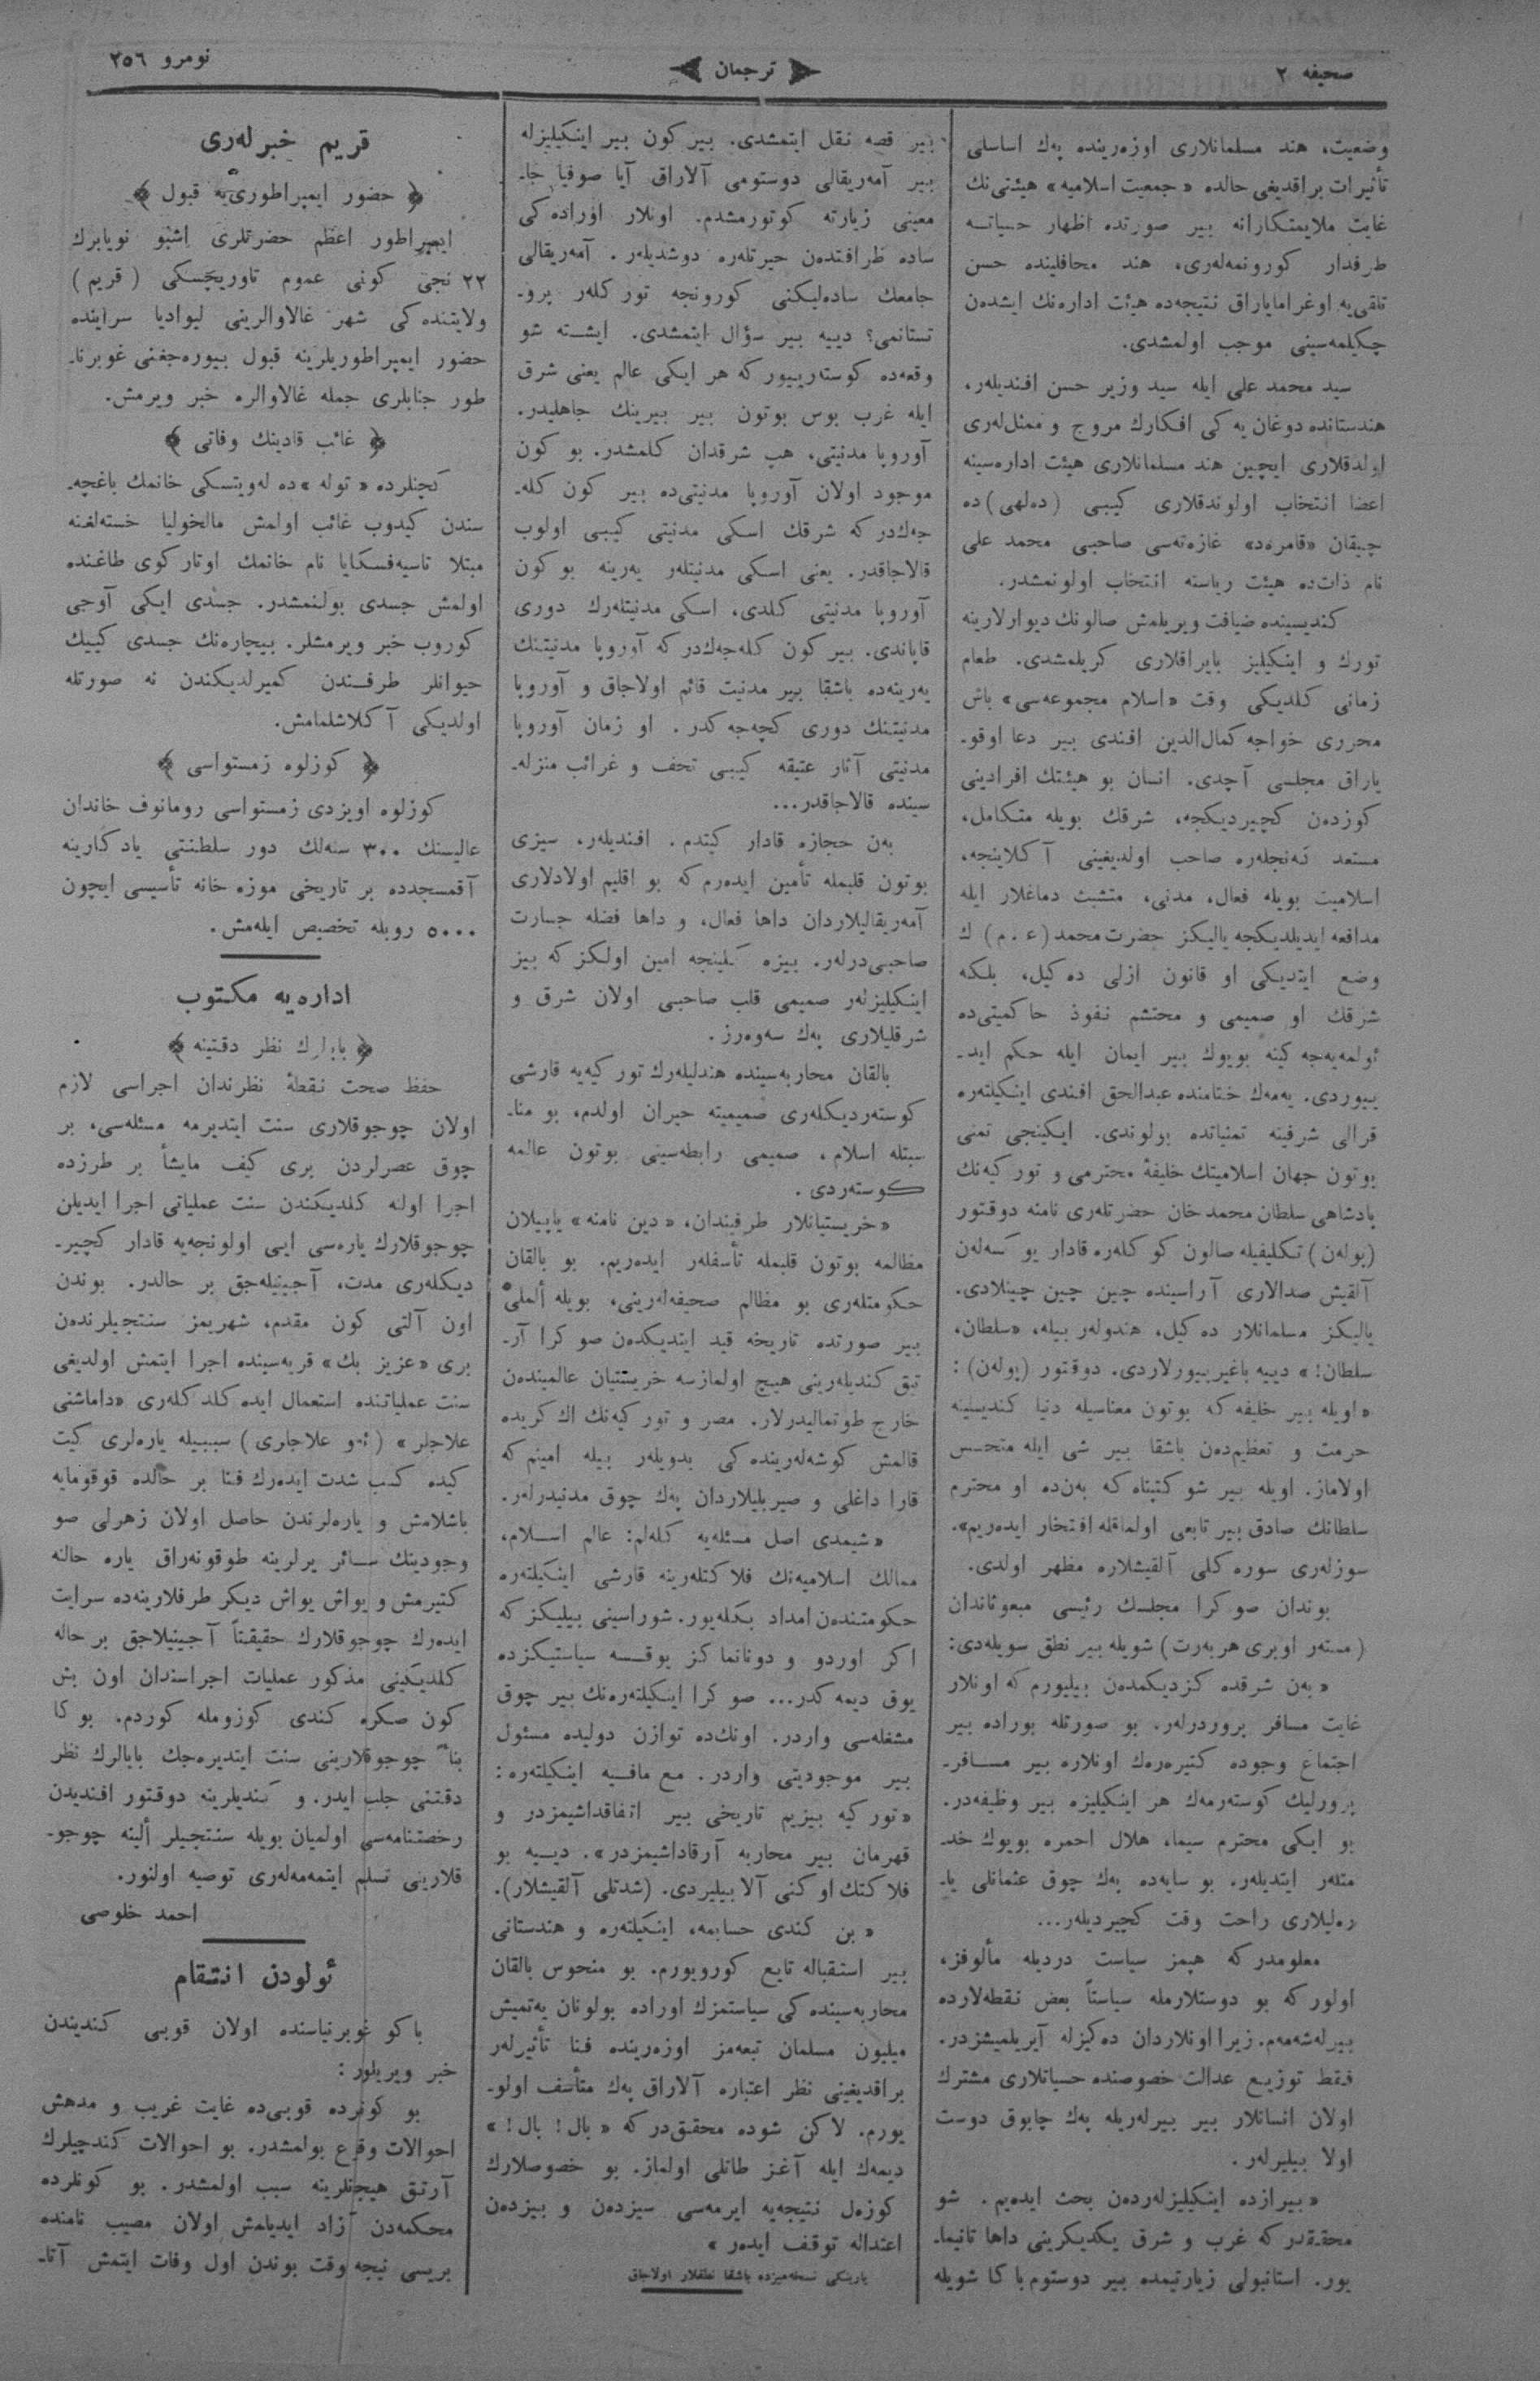 صحیفه ٢
ترجمان
نومرو ٢٥٦
وضعیت، هند مسلمانلاری اوزەرینده پەك اساسلی
تأثیرات براقدیغی حالده «جمعیت اسلامیه» هیئتی‌نك
غایت ملایمتكارانه بیر صورتده اظهار حسیاتـه
طرفدار كورونمەلەری، هند محافلینده حسن
تلقی‌یه اوغراماياراق نتیجەده هیئت ادارەنك ایشدەن
چكیلمەسینی موجب اولمشدی.
سید محمد علی ایله سید وزیر حسن افندیلەر،
هندستانده دوغان یه‌كی افكارك مروج و ممثل‌لەری
اولدقلاری ایچین هند مسلمانلاری هیئت ادارەسینه
اعضا انتخاب اولوندقلاری كیبی (دەلهی)ده
چیقان «قامرەد» غازەتەسی صاحبی محمد علی
نام ذات‌ده هیئت ریاسته انتخاب اولونمشدر.
كندیسینده ضیافت ویریلەش صالونك دیوارلارینه
تورك و اینكیلیز بایراقلاری كریلمشدی. طعام
زمانی كلدیكی وقت «اسلام مجموعەسی» باش
محرری خواجه كمال‌الدین افندی بیر دعا اوقو-
یاراق مجلسی آچدی. انسان بو هیئتك افرادینی
كوزدەن كچیردیكجه، شرقك بویله متكامل،
مستعد كەنجلەره صاحب اولدیغینی آكلاینجه،
اسلامیت بویله فعال، مدنی، متشبث دماغلار ایله
مدافعه ایدیلدیكجه یالیكز حضرت محمد (ع . م) ك
وضع ایتدیكی او قانون ازلی دەكیل، بلكه
شرقك او صمیمی و محتشم نفوذ حاكمیتی‌ده
ئولمەیەجه كینه بویوك بیر ایمان ایله حكم اید-
ییوردی. یەمەك ختامنده عبدالحق افندی اینكیلتەره
قرالی شرفینه تمنیاتده بولوندی. ایكینجی تمنی
بوتون جهان اسلامیتك خلیفهٔ محترمی و توركیەنك
پادشاهی سلطان محمد خان حضرتلەری نامنه دوقتور
(پولەن) تكلیفیله صالون كوكلەره قادار یوكسەلەن
آلقیش صدالاری آراسینده چین چین چینلادی.
یالیكز مسلمانلار دەكیل، هندولەر بیله، «سلطان،
سلطان!» دییه باغیرییورلاردی. دوقتور (پولەن):
«اویله بیر خلیفه كه بوتون معناسیله دنیا كندیسینه
حرمت و تعظیم‌دەن باشقا بیر شی ایله متحسس
اولاماز. اویله بیر شوكتپناه كه بەن‌ده او محترم
سلطانك صادق بیر تابعی اولماقله افتخار ایدەریم».
سوزلەری سورەكلی آلقیشلاره مظهر اولدی.
بوندان صوكرا مجلسك رئیسی مبعوثاندان
(مستەر اوبری هربەرت) شویله بیر نطق سویلەدی:
«بەن شرقده كزدیكمدەن بیلیورم كه اونلار
غایت مسافر پروردرلەر. بو صورتله بوراده بیر
اجتماع وجوده كتیرەرەك اونلاره بیر مسافر-
پرورلیك كوستەرمەك هر اینكیلیزه بیر وظیفەدر.
بو ایكی محترم سیما، هلال احمره بویوك خد-
متلەر ایتدیلەر. بو سایەده پەك چوق عثمانلی یا-
رەلیلاری راحت وقت كچیردیلەر...
معلومدركه هپمز سیاست دردیله مألوفز،
اولوركه بو دوستلارمله سیاستاً بعض نقطەلارده
بیرلەشەمم. زیرا اونلاردان دەكیزله آیریلمیشزدر.
فقط توزیع عدالت خصوصنده حسیاتلاری مشترك
اولان انسانلار بیر بیرلەریله پەك چابوق دوست
اولا بیلیرلەر.
«بیرازده اینكیلیزلەردەن بحث ایدەیم. شو
محققدركه غرب و شرق یكدیكرینی داها تانیما-
یور. استانبولی زیارتیمده بیر دوستوم باكا شویله
بیر قصه نقل ایتمشدی. بیر كون بیر اینكیلیزله
بیر آمەریقالی دوستومی آلاراق آیا صوفیا جا-
معینی زیارته كوتورمشدم. اونلار اورادەكی
ساده ظرافتدەن حیرتلەره دوشدیلەر. آمەریقالی
جامعك سادەلیكنی كورونجه توركلەر پرو-
تستانمی؟ دییه بیر سؤال ایتمشدی. ایشته شو
وقعەده كوستەرییوركه هر ایكی عالم یعنی شرق
ایله غرب بوس بوتون بیر بیرینك جاهلیدر.
آوروپا مدنیتی، هپ شرقدان كلمشدر. بو كون
موجود اولان آوروپا مدنیتی‌ده بیر كون كله-
جەك‌دركه شرقك اسكی مدنیتی كیبی اولوب
قالاجاقدر. یعنی اسكی مدنیتلەر یەرینه بوكون
آوروپا مدنیتی كلدی، اسكی مدنیتلەرك دوری
قاپاندی. بیركون كلەجەك‌دركه آوروپا مدنیتنك
یەرینەده باشقا بیر مدنیت قائم اولاجاق و آوروپا
مدنیتنك دوری كچەجەكدر. او زمان آوروپا
مدنیتی آثار عتیقه كیبی تحف و غرائب منزله-
سینده قالاجاقدر...
بەن حجازه قادار كیتدم. افندیلەر، سیزی
بوتون قلبمله تأمین ایدەرم كه بو اقلیم اولادلاری
آمەریقالیلاردان داها فعال، و داها فضله جسارت
صاحبی‌درلەر. بیزه كلینجه امین اولكزكه بیز
اینكیلیزلەر صمیمی قلب صاحبی اولان شرق و
شرقلیلاری پەك سەوەرز.
بالقان محاربەسینده هندلیلەرك توركیەیه قارشی
كوستەردیكلەری صمیمیته حیران اولدم، بو منا-
سبتله اسلام، صمیمی رابطەسینی بوتون عالمه
كوستەردی.
«خریستیانلار طرفیندان، «دین نامنه» یاپیلان
مظالمه بوتون قلبمله تأسفلەر ایدەریم. بو بالقان
حكومتلەری بو مظالم صحیفەلەرینی، بویله ألملی
بیر صورتده تاریخه قید ایتدیكدەن صوكرا آر-
تیق كندیلەرینی هیچ اولمازسه خریستیان عالمیندەن
خارج طوتمالیدرلار. مصر و توركیەنك اك كریده
قالمش كوشەلەریندەكی بدویلەر بیله امینم كه
قارا داغلی و صیربلیلاردان پەك چوق مدنیدرلەر.
«شیمدی اصل مسئلەیه كلەلم: عالم اسلام،
ممالك اسلامیەنك فلاكتلەرینه قارشی اینكیلتەره
حكومتندەن امداد بكلەیور. شوراسینی بیلیكزكه
اكر اوردو و دونانماكز یوقسه سیاستیكزده
یوق دیمەكدر... صوكرا اینكیلتەرەنك بیر چوق
مشغلەسی واردر. اونك‌ده توازن دولیده مسئول
بیر موجودیتی واردر. مع مافیه اینكیلتەره:
«توركیه بیزیم تاریخی بیر اتفاقداشیمزدر و
قهرمان بیر محاربه آرقاداشیمزدر». دییه بو
فلاكتك اوكنی آلا بیلیردی. (شدتلی آلقیشلار).
«بن كندی حسابمه، اینكیلتەره و هندستانی
بیر استقباله تابع كورویورم. بو منحوس بالقان
محاربەسیندەكی سیاستمزك اوراده بولونان یەتمیش
میلیون مسلمان تبعەمز اوزەرینده فنا تأثیرلەر
براقدیغینی نظر اعتباره آلاراق پەك متأسف اولو-
یورم. لاكن شوده محقق‌دركه «بال! بال!»
دیمەك ایله آغز طاتلی اولماز. بو خصوصلارك
كوزەل نتیجەیه ایرمەسی سیزدەن و بیزدەن
اعتداله توقف ایدەر»
یارینكی نسخەمیزده باشقا نطقلار اولاجاق
قریم خبرلەری
﴿ حضور ایمپراطوری‌یه قبول ﴾
ایمپراطور اعظم حضرتلری اشبو نویابرك
٢٢ نجی كونی عموم تاوریچسكی (قریم)
ولایتنده‌كی شهر غالاوالرینی لیوادیا سراینده
حضور ایمپراطوریلرینه قبول بیورەجغنی غوبرنا-
طور جنابلری جمله غالاوالره خبر ویرمش.
﴿ غائب قادینك وفاتی ﴾
كچنلرده «توله»ده لەویتسكی خانمك باغچه-
سندن كیدوب غائب اولمش مالخولیا خستەلغنه
مبتلا تاسیەفسكایا نام خانمك اوتاركوی طاغنده
اولمش جسدی بولنمشدر. جسدی ایكی آوجی
كوروب خبر ویرمشلر. بیچارەنك جسدی كییك
حیوانلر طرفندن كمیرلدیكندن نه صورتله
اولدیكی آكلاشلمامش.
﴿ كوزلوه زمستواسی ﴾
كوزلوه اویزدی زمستواسی رومانوف خاندان
عالیسنك ٣٠٠ سنه‌لك دور سلطنتی یادكارینه
آقمسجدده بر تاریخی موزه خانه تأسیسی ایچون
٥٠٠٠ روبله تخصیص ایلەمش.
ادارەیه مكتوب
﴿ بابالرك نظر دقتینه ﴾
حفظ صحت نقطهٔ نظرندان اجراسی لازم
اولان چوجوقلاری سنت ایتدیرمه مسئلەسی، بر
چوق عصرلردن بری كیف مایشأ بر طرزده
اجرا اولنه كلدیكندن سنت عملیاتی اجرا ایدیلن
چوجوقلارك یارەسی ایی اولونجەیه قادار كچیر-
دیكلەری مدت، آجینیلەجق بر حالدر. بوندن
اون آلتی كون مقدم، شهریمز سنتجیلرندەن
بری «عزیز بك» قریەسینده اجرا ایتمش اولدیغی
سنت عملیاتنده استعمال ایده كلدكلەری «داماشنی
علاجلر» (ئەو علاجلری) سببیله یارەلری كیت
كیده كسب شدت ایدەرك فنا بر حالده قوقومایه
باشلامش و یارەلرندن حاصل اولان زهرلی صو
وجودینك سائر یرلرینه طوقونەراق یاره حالنه
كتیرمش و یواش یواش دیكر طرفلارینەده سرایت
ایدەرك چوجوقلارك حقیقتاً آجینیلاجق بر حاله
كلدیكینی مذكور عملیات اجراسندان اون بش
كون صكره كندی كوزومله كوردم. بوكا
بناءً چوجوقلارینی سنت ایتدیرەجك بابالرك نظر
دقتنی جلب ایدر. و كندیلرینه دوقتور افندیدن
رخصتنامەسی اولمیان بویله سنتجیلر ألینه چوجو-
قلارینی تسلیم ایتمەمەلەری توصیه اولنور.
احمد خلوصی
ئولودن انتقام
باكو غوبرنیاسنده اولان قوبی كندیندن
خبر ویریلور:
بو كونلرده قوبی‌ده غایت غریب و مدهش
احوالات وقوع بولمشدر. بو احوالات كندچیلرك
آرتق هیجانلرینه سبب اولمشدر. بو كونلرده
محكمەدن آزاد ایدیلمش اولان مصیب نامنده
بریسی نیجه وقت بوندن اول وفات ایتمش آتا-